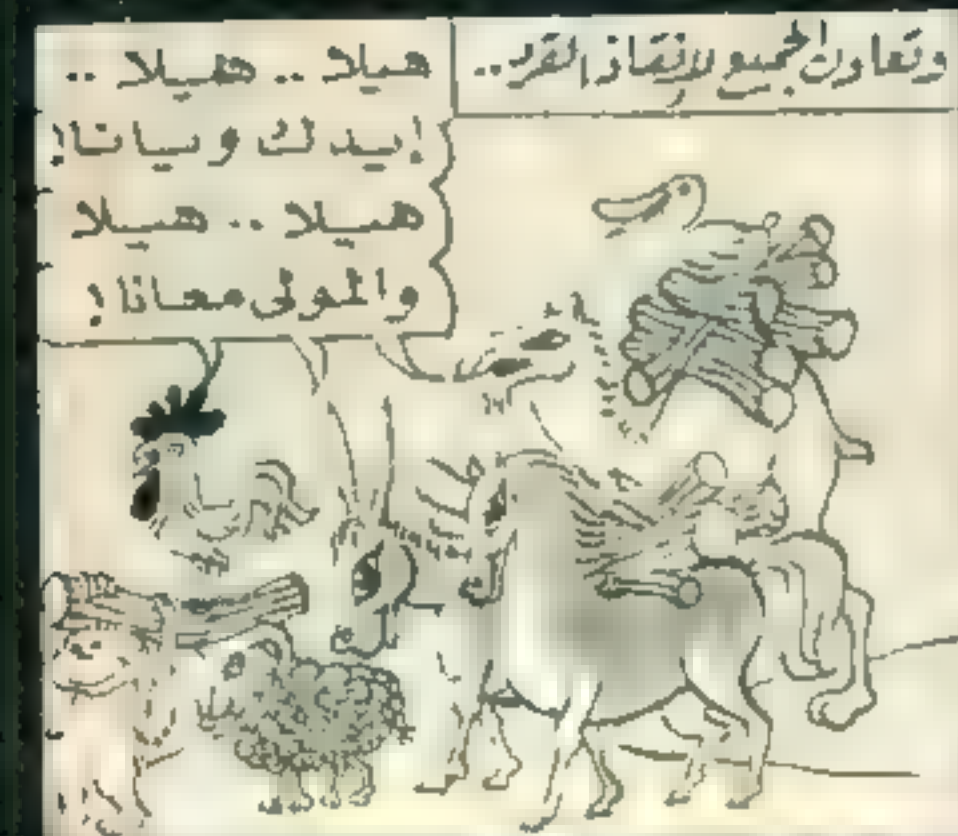 وتعاون الجميع لإنقاذ القرد..
هيلا .. هيلا ..
إيدك ويانا!
هيلا .. هيلا
والمولى معانا!